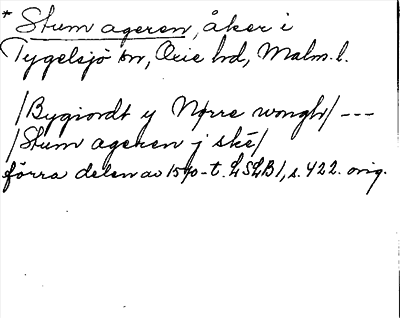 * Stum ageren, åker i
Tygelsjö sn, Oxie hd, Malm. l.
/Bygiordt y Nørre wongh/ ---
/Stum ageren j skê/
förra delen av 1570-t. LSLB1, s. 422. orig.